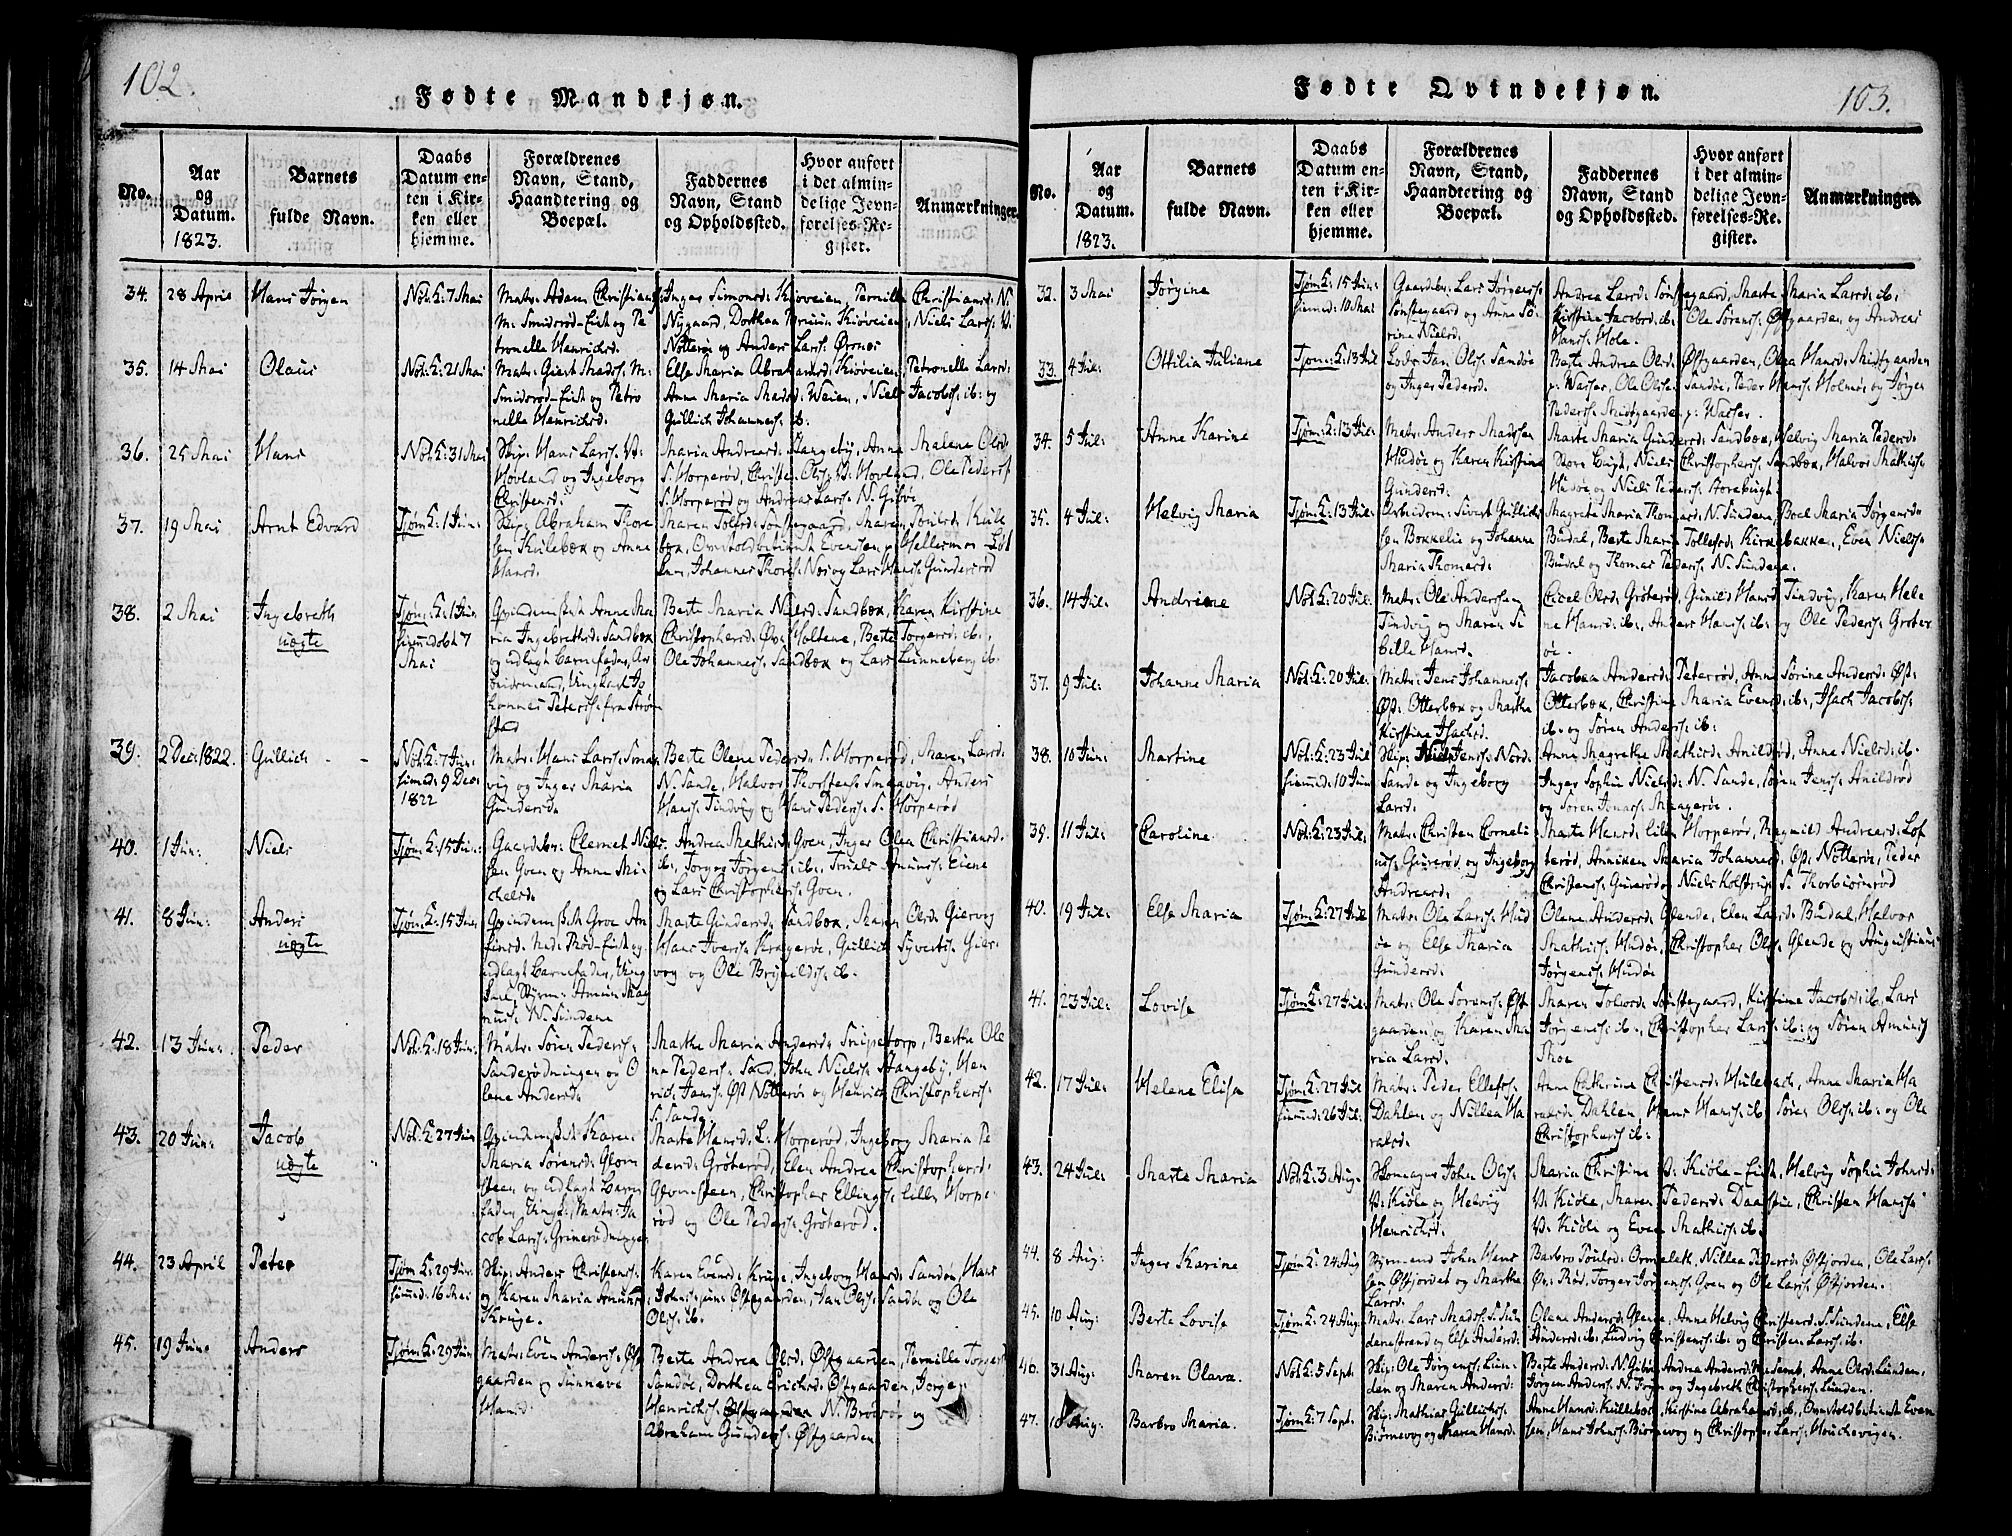 102.
Fødte Mandkjøn.
No.
Aar
og
Datum.
1823.
Barnets
fulde Navn.
Daabs
Datum en-
ten i Kir-
ken eller
hjemme.
Forældrenes
Navn, Stand,
Haandtering og
Boepæl.
Faddernes
Navn, Stand
og Opholdssted.
Hvor anført
i det almin-
delige Jevn-
førelses-Re-
gister.
Anmærkninger.
34. 28 April Hans Jørgen Nöt: K: 7 Mai
Matr: Adam Christians:
M: Smidsrød-Eist og Pe
tronelle Henrichsd:
Inger Simonsd: Kiøveien, Pernille Christiansd: N
Nygaard, Dorthea Kiøveien, Niels Larss:
Nötterøe og Anders Larss: Ørsnes
35. 14 Mai Olaus Nöt: K: 21 Mai
Matr: Giert Madss: M:
Smidsrød-Eist og Petro
nelle Henrichsd:
Else Maria Abrahamsd: Kiøveien, Petronelle Larsd:
Anna Maria Madsd: Weien, Niels Jacobs: ib: og
Gullich Johanness: ib:
36. 25 Mai Hans Nöt: K: 31 Mai
Skip: Hans Larss: V:
Hovland og Ingeborg
Christensd:
Maria Andreasd: Stangeby, Anne Malene Olsd:
S. Horperød, Christen Olss: V: Hovland, Ole Pederss
S. Horperød og Andreas Larss: N. Gibøe
37. 19 Mai Arnt Edvard Tjöm K: 1 Jun:
Skip: Abraham Thore
sen Kulebæx og Anne
Hansd:
Maren Tolfsd: Sønstegaard, Maren Poulsd: Kulle
bæx, Omstoldbetient Evensen p: Hellesmoe
Johannes Thores: Næs og Lars Hans: Gundersrød
38. 2 Mai Ingebreth
uægte
Tjöm K: 1 Jun:
hiemdøbt 7
Mai
Qvindemsk: Anne Ma
ria Ingebrethsd: Sandbæx
og udlagt Barnefader, Ar
beidsmand, Ungkarl Jo
hannes Peterss: fra Strøm
stad
Berte Maria Nielsd: Sandbæx, Karen Kirstine
Christophersd: Øv: Holtene, Berte Torgersd: ib:,
Ole Johanness: Sandbæx og Lars Lunneberg ib:
39. 2 Dec: 1822. Gullich
Nöt: K: 7 Jun:
hiemd: 9 Dec:
1822
Matr: Hans Larss: Smaa
vig og Inger Maria
Gundersd:
Berte Olene Pedersd: S. Horperød, Maren Larsd:
N. Sande, Halvor Thorstens: Smaavig, Anders
Hanss: Tindvig og Hans Pederss: S. Horperød
40. 1 Jun: Niels Tjöm K: 15 Jun:
Gaardbr: Clemet Niel
sen Goen og Anne Mi
chelsd:
Andrea Mathisd: Goen, Inger Olea Christiansd:
ib:, Torger Jørgens: ib:, Truels Amuns: Eiene
og Lars Christophers: Goen.
41. 8 Jun: Anders
uægte
Tjöm K: 15 Jun:
Qvindemsk: Groe An
dersd: Ned: Rød-Eist og
udlagt Barnefader, Ung
karl, Styrm: Amun Mag
nuss: N. Sundene
Marte Gundersd: Sandbæx, Maren Olsd: Giervog
Hans Iverss: Kragerøe, Gullich Syvertss: Gier-
vog og Ole Brynilds: ib:
42. 13 Jun: Peder Nöt: K: 18 Jun:
Matr: Søren Pederss:
Sanderødningen og O
lene Andersd:
Marthe Maria Andersd: Snipetorp, Berthe Ole
na Pederss: Sand, John Nielss: Stangebÿ, Hen
rich Janss: Øst Nötterøe og Henrich Christophers:
S. Sande
43. 20 Jun: Jacob
uægte
Nöt: K: 27 Jun:
Qvindemsk: Karen
Maria Sørensd: Glom
steen og udlagt Barne
fader, Ungk: Matr: Ja
cob Larss: Grimerødningen
Marte Hansd: L: Horperød, Ingeborg Maria Pe
dersd: Grøterød, Elen Andrea Christophersd:
Glomsteen, Christopher Ellings: Lille Horpe-
rød og Ole Pederss: Grøterød.
44. 23 April Peter Tjöm K: 29 Jun:
hiemd: 16 Mai
Skip: Anders Christenss:
og Karen Maria Amunds
Kruge.
Karen Evensd: Kruge, Ingeborg Hansd: Sanden, Hans
Johns: Østgaarden, Jan Olss: Sandøe og Ole
Olss: ib.
45. 19 Jun: Anders Tjöm K: 29 Jun
Matr: Even Anderss: Øst
gaarden og Sunneve
Hansd:
Berte Andrea Olsd: Østgaarden, Pernille Torgersd:
Sandøe, Dorthea Erichsd: Østgaarden, Jørgen
Henrichs: N. Brøtsøe og
Abraham Gunderss: Østgaarden
103.
Fødte Qvindekjøn.
No.
Aar
og
Datum.
1823.
Barnets
fulde Navn.
Daabs
Datum en-
ten i Kir-
ken eller
hjemme.
Forældrenes
Navn, Stand,
Haandtering og
Boepæl.
Faddernes
Navn, Stand
og Opholdssted.
Hvor anført
i det almin-
delige Jevn-
førelses-Re-
gister.
Anmærkninger.
32. 3 Mai Jørgine Tjöm K: 15 Jun:
hiemd: 10 Mai
Gaardbr: Lars Jørgenss:
Sønstegaard og Anne So
rine Nielsd:
Andrea Larsd: Sønstegaard, Marte Maria Larsd: ib:
Kirstine Jacobsd: ib: Ole Sørens: Østgaarden og Andreas
Hanss: Hole.
33. 4 Jul: Ottilia Juliane Tjöm: K: 13 Jul
Lods Jan Olss: Sandøe
og Inger Pedersd:
Berte Andrea Olsd: Østgaarden, Olea Hansd: Midtgaarden
p: Wasser, Ole Olsen Sandøe, Peder Hanss: Holmen og Jørgen
Pederss: Midtgaarden p: Wasser.
34. 5 Jul: Anne Karine Tjöm: K: 13 Jul:
Matr: Anders Madssen
Hudøe og Karen Kirstine
Gundersd:
Marte Maria Gundersd: Sandbæx, Helvig Maria Pedersd:
Store Bugt, Niels Christophers: Sandbæx, Halvor Mathiss:
Hudøe og Niels Pederss: Storebugt.
35. 4 Jul: Helvig Maria Tjöm K: 13 Jul:
Arbeidsm: Sivert Gullich
sen Bokkelie og Johanne
Maria Thomasd:
Magrete Maria Thomasd: N. Sundene, Boel Maria Jørgensd:
Budal, Berte Maria Tollefsd: Kirkebakken, Even Niels:
Budal og Thomas Peders: N. Sundene.
36. 14 Jul: Andrine Nöt K: 20 Jul:
Matr: Ole Andersen
Tindvig og Maren Si
bille Hansd:
Olsd: Grøterød, Hansd: Tindvig, Karen Hele
ne Hansd: ib:, Anders Hans: ib: og Ole Peders: Grøter
øe.
37. 9 Jul: Johanne Maria Nöt: K: 20 Jul:
Matr: Jens Johannes:
Øv: Otterbæx og Marthe
Kirstine Isachsd:
Jacobea Andersd: Peterrød, Anne Sørine Andersd: Øv:
Otterbæx, Christine Maria Evensd: ib:, Isach Jacobss:
ib: og Søren Anderss: ib:
38. 10 Jun: Martine Nöt: K: 23 Jul
hiemd: 10 Jun
Skip: Niels Jenss: Nord-
Sande og Ingeborg
Larsd:
Anne Magrethe Mathisd: Anildrød, Anne Nielsd: ib.
Inger Sophie Nielsd: N. Sande, Søren Jenss: Anildrød
og Søren Jonas: Maagerøe.
39. 11 Jul: Caroline Nöt: K: 23 Jul:
Matr: Christen Corneli
us: Gunerød og Ingeborg
Andreasd:
Marte Hansd: Lille Horperød, Ragnild Andreasd: Lof
terød, Anniken Maria Johannesd: Øst: Nötterøe, Peder
Christens: Gunerød og Niels Kolstrup S. Thorbiørnrød
40. 19 Jul: Else Maria Tjöm K: 27 Jul
Matr: Ole Larss: Hud
øe og Else Maria
Gundersd:
Olene Andersd: Glende, Elen Larsd: Budal, Halvor
Mathiss: Hudøe, Christopher Olss: Glende og Augustinus
Jørgens: Hudøe
41. 23 Jul: Lovise Tjöm K: 27 Jul:
Matr: Ole Sørenss: Øst
gaarden og Karen Ma
ria Larsd:
Maren Tolvsd: Sønstegaard, Kirstine Jacobsd: ib. Lars
Jørgens: ib:, Christopher Lars: ib: og Søren Amuns
Thoe
42. 17 Jul: Helene Elisa Tjöm K: 27 Jul
hiemd: 26 Jul:
Matr: Peder Ellefss:
Dahlen og Nillea Ha
ralsd:
Anne Cathrine Christensd: Hulebach, Anne Maria Ha
raldsd: Dahlen, Hans Hanss: ib: Søren Olss: ib: og Ole
Christophers: ib:
43. 24 Jul: Marte Maria Nöt: K: 3 Aug:
Skomager John Olss:
V: Kiøle og Helvig
Henrichsd:
Maria Christine V: Kiøle-Eist, Helvig Sophia Johnsd:
V: Kiøle, Maren Pedersd: Christen Hanss:
V: Kiøle og Even Mathiss: ib:
44. 8 Aug: Inger Karine Tjöm K: 24 Aug
Styrmand John Han
sen Østjordet og Marthe
Larsd:
Barbro Poulsd: Ormeleth, Nillea Pedersd: Østjorden, Ole Larss:
Øv: Rød, Torger Jørgenss: Goen og Ole Larss: Østjorden.
45. 10 Aug: Berte Lovise Tjöm K: 24 Aug:
Matr: Lars Madss: S. Sun
denestrand og Else Andersd:
Olene Andersd: Glende, Anne Helvig Christensd: S. Sundene, Else
Andersd: ib: Ludvig Christens: ib: og Christen Larss: ib:
46. 31 Aug: Maren Olava. Nöt K: 5 Sept:
Skip: Ole Jørgenss: Lun-
den og Maren Andersd:
Berte Andersd: N. Gibøe, Andrea Andersd: Anne Olsd: Lunden,
Jørgen Anderss: N. og Ingebreth Christophers: Lunden.
47. 10 Aug: Barbro Maria. Tjöm K: 7 Sept.
Skip: Mathias Gullichs:
Biørnevog og Maren Hansd:
Anne Hansd: Kullebæx, Kirstine Abrahamsd: ib:, Omstoldbetient Even
sen, Hans Johns: Biørnevog og Christopher Larss: Houchevegen.